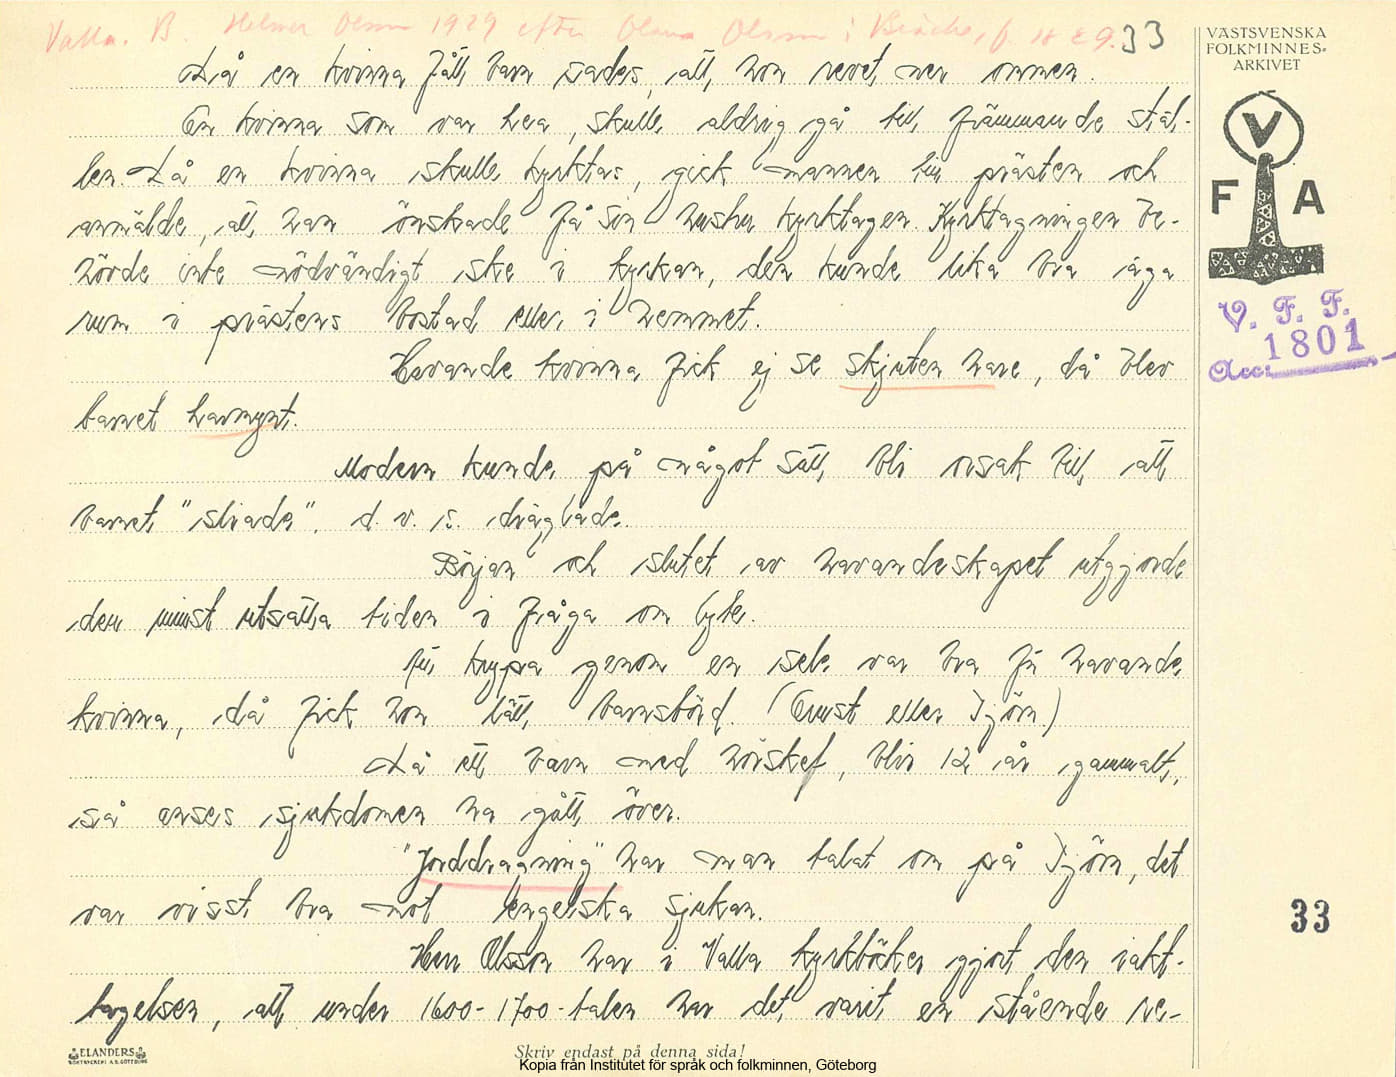 Valla. B. Helmer Olsson 1929 efter Olaus Olsson i Bräcke, f. 1829. 33
VÄSTSVENSKA
FOLKMINNES-
ARKIVET
Då en kvinna fått barn sades, att hon revet ner ommen.
En kvinna som var hea, skulle aldrig gå till främmande stäl-
len. Då en kvinna skulle kyrktas, gick mannen till prästen och
anmälde, att han önskade få sin hustru kyrktagen. Kyrktagningen be-
hörde inte nödvändigt ske i kyrkan, den kunde lika bra äga
rum i prästens bostad eller i hemmet.
Havande kvinna fick ej se skjuten hare, då blev
barnet harmynt.
Modern kunde på något sätt bli orsak till, att
barnet "sliade", d. v. s. dräglade.
Början och slutet av havandeskapet utgjorde
den minst utsatta tiden i fråga om lyte.
Att krypa genom en sele var bra för havande
kvinna, då fick hon lätt barnsbörd. (Orust eller Tjörn)
Då ett barn med horskef, blir 12 år gammalt,
så anses sjukdomen ha gått över.
"Jorddragning" har man talat om på Tjörn, det
var visst bra mot engelska sjukan.
Herr Olsson har i Valla kyrkböcker gjort den iakt-
tagelsen, att under 1600-1700-talen har det varit en stående re-
V
F A
V. F. F.
Acc: 1801
33
ELANDERS
BOKTRYCKERI A.B. GÖTEBORG
Skriv endast på denna sida!
Kopia från Institutet för språk och folkminnen, Göteborg